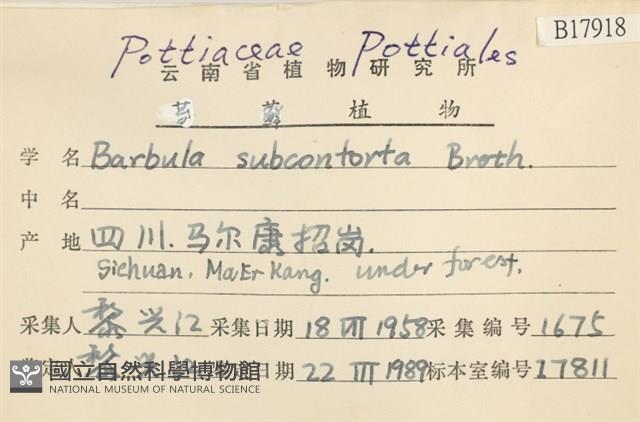 B17918
Pottiaceae Pottiales
云南省植物研究所
苔藓植物
学名 Barbula subcontorta Broth.
中名
产地 四川.马尔康招岗.
Sichuan, MaEr Kang. under forest.
采集人 黎兴江 采集日期 18 VII 1958 采集编号 1675
黎兴江 日期 22 III 1989 标本室编号 17811
國立自然科學博物館
NATIONAL MUSEUM OF NATURAL SCIENCE